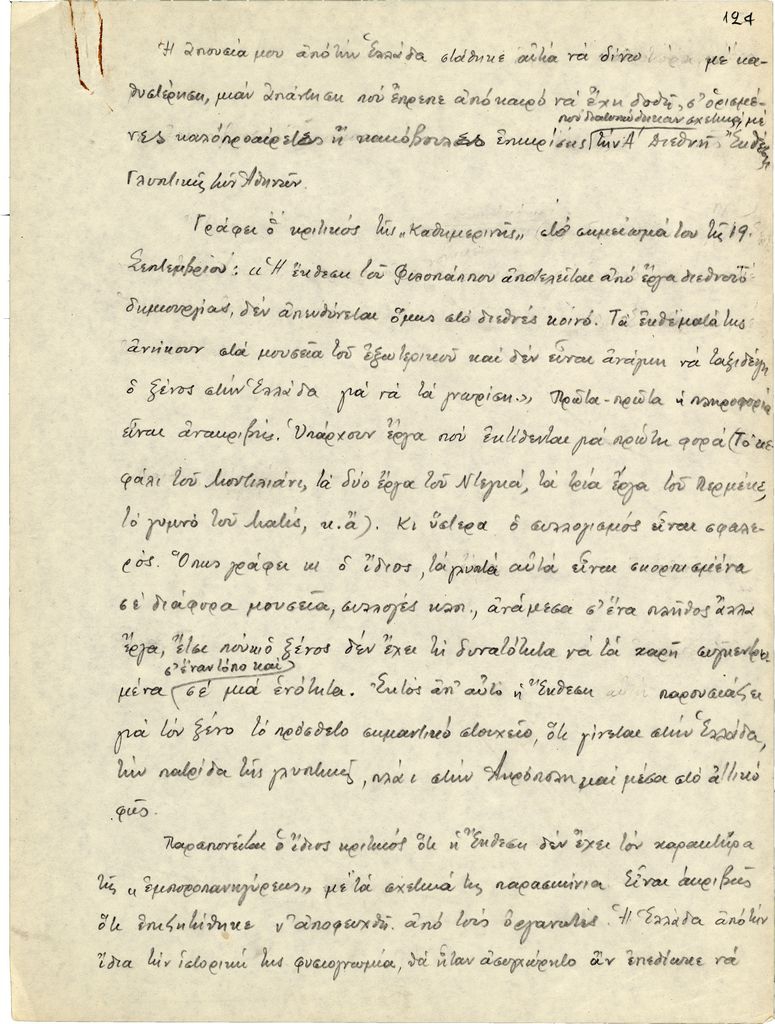 124
Ἡ ἀπουσία μου ἀπό τήν Ἑλλάδα στάθηκε αἰτία νά δίνω τώρα, μέ κα-
θυστέρηση, μιάν ἀπάντηση πού ἔπρεπε ἀπό καιρό νά ἔχη δοθῆ, σ' ὁρισμέ-
πού διατυπώθηκαν σχετικά μέ
νες καλοπροαίρετες ἤ κακόβουλες ἐπικρίσεις τήν Α' Διεθνῆ Ἔκθεση
Γλυπτικῆς τῶν Ἀθηνῶν.
Γράφει ὁ κριτικός τῆς „Καθημερινῆς„ στό σημείωμά του τῆς 19
Σεπτεμβρίου: « Ἡ ἔκθεση τοῦ Φιλοπάππου ἀποτελεῖται ἀπό ἔργα διεθνοῦς
δημιουργίας, δέν ἀπευθύνεται ὅμως στό διεθνές κοινό. Τά ἐκθέματά της
ἀνήκουν στά μουσεῖα τοῦ ἐξωτερικοῦ καί δέν εἶναι ἀνάγκη νά ταξιδέψη
ὁ ξένος στήν Ἑλλάδα γιά νά τά γνωρίση.» Πρῶτα-πρῶτα ἡ πληροφορία
εἶναι ἀνακριβής. Ὑπάρχουν ἔργα πού ἐκτίθενται γιά πρώτη φορά (Τό κε-
φάλι τοῦ Μοντιλιάνι, τά δύο ἔργα τοῦ Ντεγκά, τά τρία ἔργα τοῦ Περμέκε,
τό γυμνό τοῦ Ματίς, κ.ἄ). Κι ὕστερα ὁ συλλογισμός εἶναι σφαλε-
ρός. Ὅπως γράφει κι ὁ ἴδιος, τά γλυπτά αὐτά εἶναι σκορπισμένα
σέ διάφορα μουσεῖα, συλλογές κλπ., ἀνάμεσα σ' ἕνα πλῆθος ἄλλα
ἔργα, ἔτσι πού ὁ ξένος δέν ἔχει τή δυνατότητα νά τά χαρῆ συγκεντρω
σ' ἕναν τόπο καί
μένα σέ μιά ἑνότητα. Ἐκτός ἀπ' αὐτό ἡ Ἔκθεση παρουσιάζει
γιά τόν ξένο τό πρόσθετο σημαντικό στοιχεῖο, ὅτι γίνεται στήν Ἑλλάδα,
τήν πατρίδα τῆς γλυπτικῆς, πλάι στήν Ἀκρόπολη καί μέσα στό ἀττικό
φῶς.
Παραπονεῖται ὁ ἴδιος κριτικός ὅτι ἡ Ἔκθεση δέν ἔχει τόν χαρακτῆρα
τῆς « ἐμποροπανηγύρεως» μέ τά σχετικά της παρασκήνια. Εἶναι ἀκριβῶς
ὅτι ἐπιζητήθηκε ν' ἀποφευχθῆ ἀπό τούς ὀργανωτές. Ἡ Ἑλλάδα ἀπό τήν
ἴδια τήν ἱστορική της φυσιογνωμία, θά ἦταν ἀσυγχώρητο ἄν ἐπεδίωκε νά